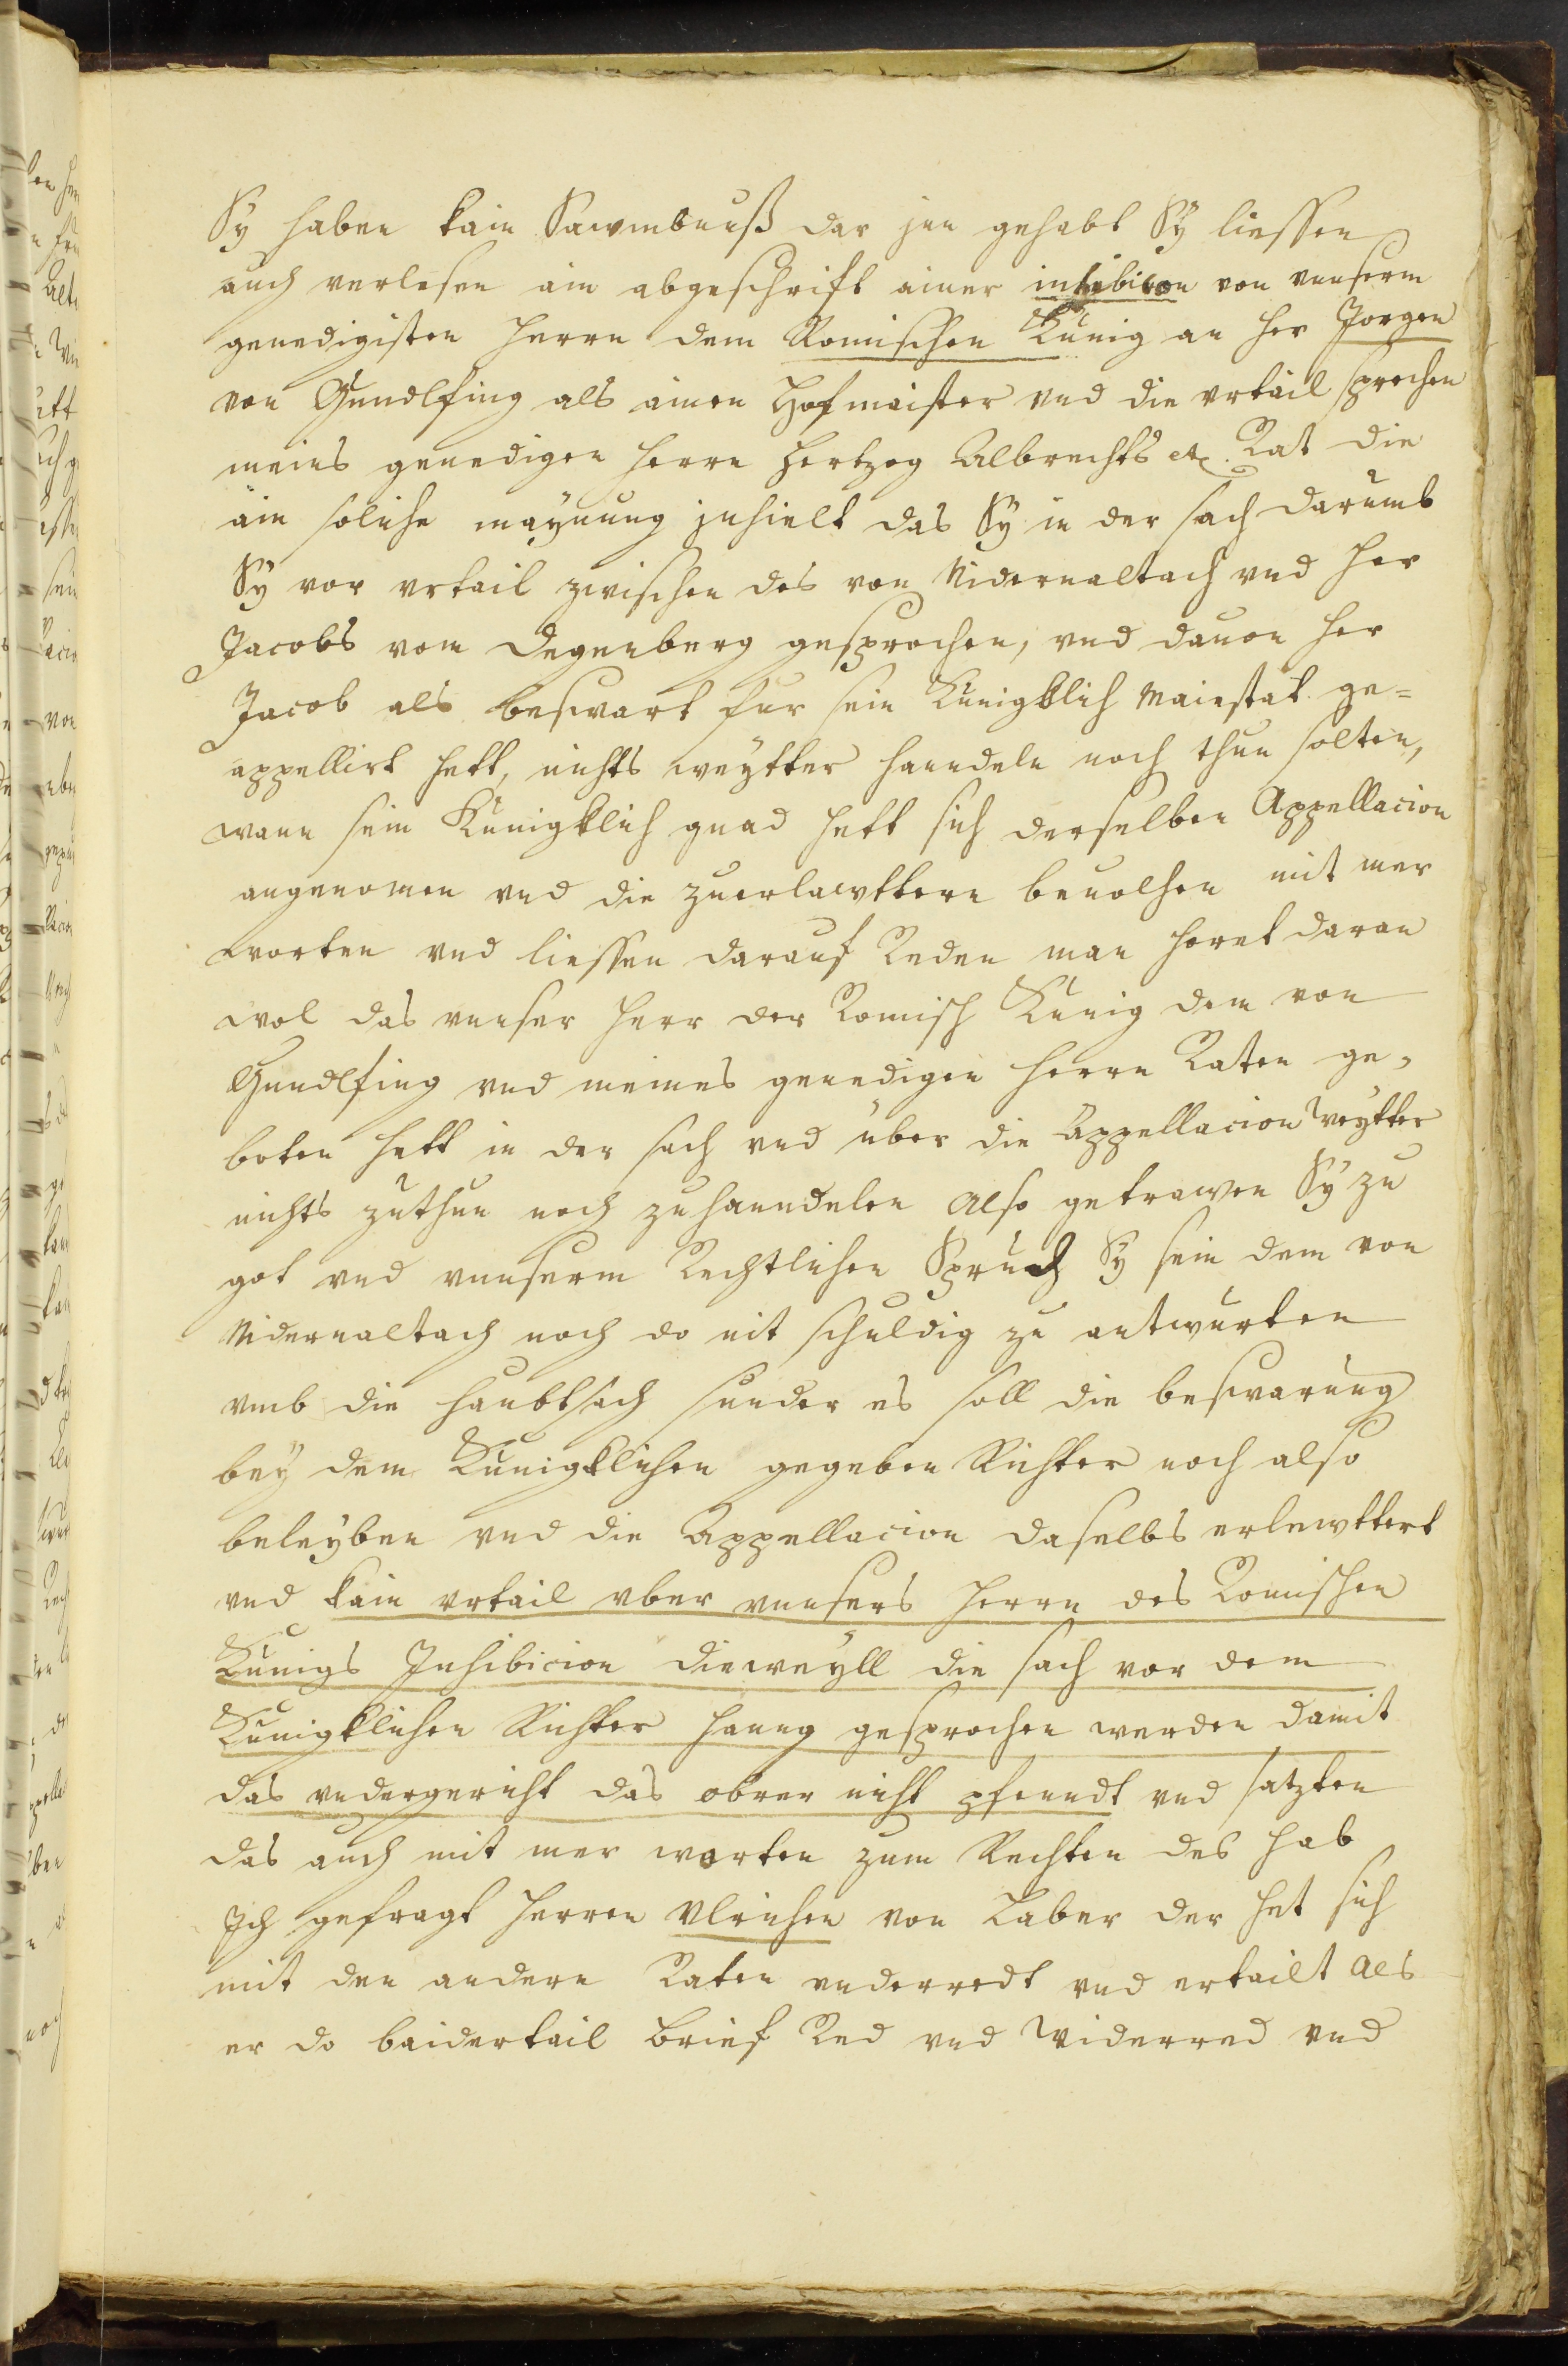 Sy haben kain Sawmbnuß dar jnn gehabt Sy liessen
auch verlesen ain abgeschrift ainer inhibicon von vnnserm
genedigisten Herrn dem Romischen Kunig an her Jorgen
von Gundlfing als ainen Hofmaister vnd die vrtail sprechen
meins genedigen Herrn Hertzog Albrechts etc. Rat die
ain soliche maynung jnhielt das Sy in der sach darumb
Sy vor vrtail zwischen des von Nidernaltach vnd her
Jacobs vom Degenberg gesprochen, vnd dauon her
Jacob als beswart fur sein Kunigklich Maiestat ge=
appellirt hett, nichts weytter hanndeln noch thun solten,
wann sein Kunigklich gnad hett sich derselben Appellacion
angenomen vnd die zuerlawttern beuolhen mit mer
worten vnd liessen darauf Reden man horet daran
wol das vnnser Herr der Romisch Kunig dem von
Gundlfing vnd meines genedigen Herrn Raten ge=
boten hett in der sach vnd uber die Appellacion weytter
nichts zuthun noch zuhanndelen Also getrawen Sy zu
got vnd vnnserm Rechtlichen Spruch Sy sein dem von
Nidernaltach noch do nit schuldig zu antwurten
vmb die haubtsach sunder es soll die beswarung
bey dem Kunigklichen gegeben Richter noch also
beleyben vnd die Appellacion daselbs erlewttert
vnd kain vrtail vber vnnsers Herrn des Romischen
Kunigs Inhibicion dieweyll die sach vor dem
Kunigklichen Richter hanng gesprochen werden damit
das vndergericht das obrer nicht pfenndt vnd satzten
das auch mit mer worten zum Rechten des hab
Ich gefragt Herren Vlrichen von Laber der het sich
mit den andern Raten vnderredt vnd ertailt Als
er do baidertail brief Red vnd widerred vnd